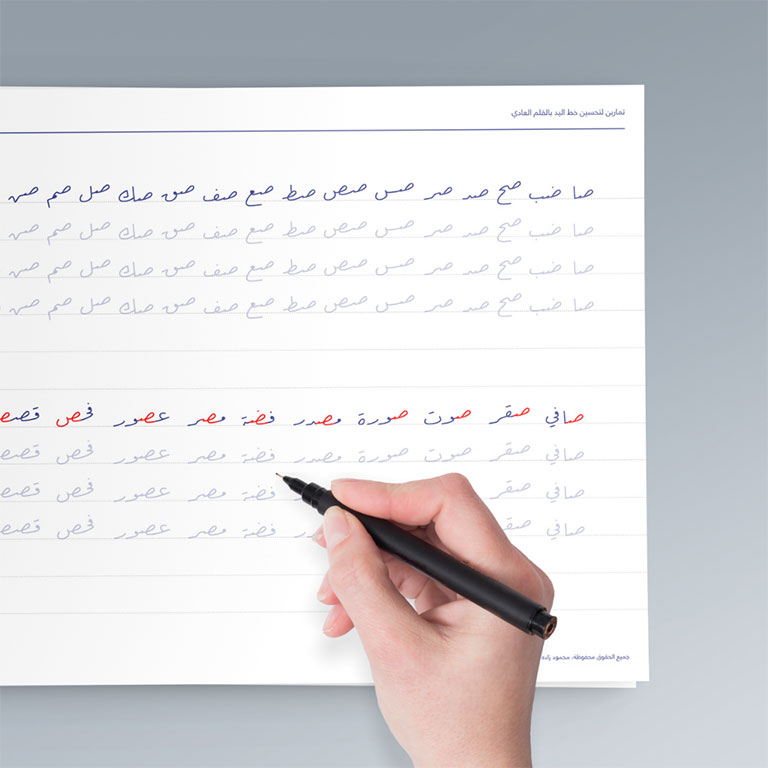 تمارين لتحسين خط اليد بالقلم العادي
صا صب صح صد صر صس صص صط صع صف صق صك صل صم صن
صا صب صح صد صر صس صص صط صع صف صق صك صل صم صن
صا صب صح صد صر صس صص صط صع صف صق صك صل صم صن
صا صب صح صد صر صس صص صط صع صف صق صك صل صم صن
صافي صقر صوت صورة مصدر فضة مصر عصور فحص
صافي صقر صوت صورة مصدر فضة مصر عصور فحص
صافي صقر فضة مصر عصور فحص
صافي صقر فضة مصر عصور فحص
جميع الحقوق محفوظة، محمود زاده